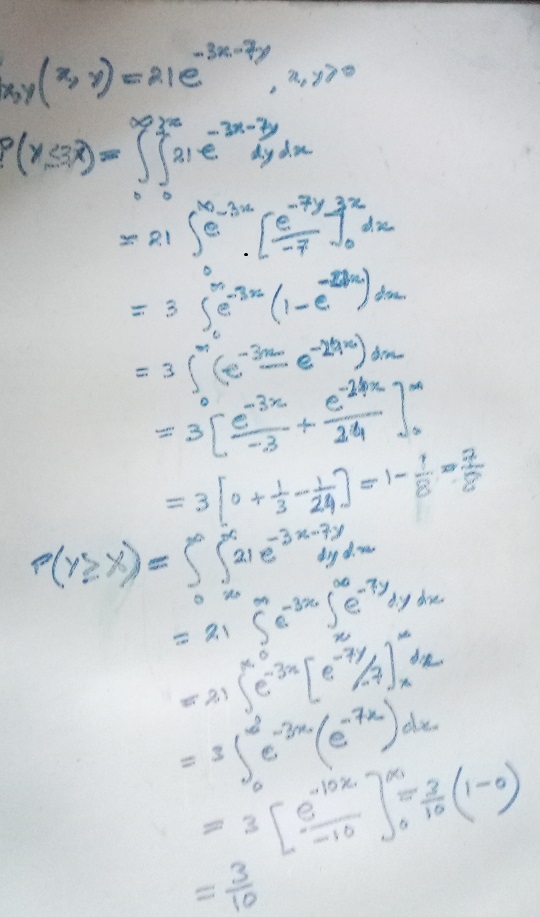 f_{X,Y}(x, y) = 21e^{-3x-7y}, x, y>0
P(Y≤3X) = ∫_0^∞ ∫_0^{3x} 21 e^{-3x-7y} dy dx
= 21 ∫_0^∞ e^{-3x} [e^{-7y}/-7]_0^{3x} dx
= 3 ∫_0^∞ e^{-3x} (1-e^{-21x}) dx
= 3 ∫_0^∞ (e^{-3x} - e^{-24x}) dx
= 3 [e^{-3x}/-3 + e^{-24x}/24]_0^∞
= 3 [0 + 1/3 - 1/24] = 1 - 1/8 = 7/8
P(Y≥X) = ∫_0^∞ ∫_x^∞ 21e^{-3x-7y} dy dx
= 21 ∫_0^∞ e^{-3x} ∫_x^∞ e^{-7y} dy dx
= 21 ∫_0^∞ e^{-3x} [e^{-7y}/-7]_x^∞ dx
= 3 ∫_0^∞ e^{-3x} (e^{-7x}) dx
= 3 [e^{-10x}/-10]_0^∞ = 3/10 (1-0)
= 3/10